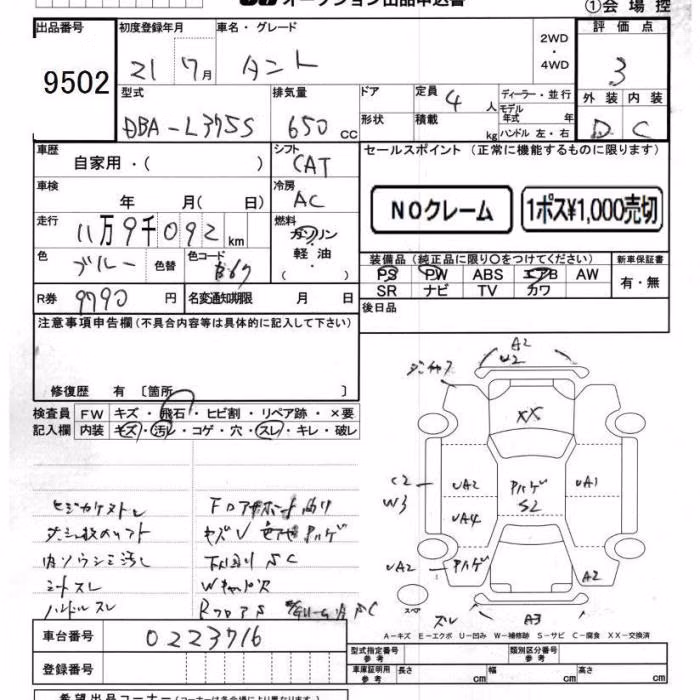 オークション出品申込書
①会場控
出品番号
9502
初度登録年月
21 7月
車名・グレード
タント
2WD
・
4WD
評価点
3
外装 内装
D C
型式
DBA-L375S
排気量
650 cc
ドア
形状
定員 4 人
積載 kg
ディーラー・並行
モデル
年式 年
ハンドル 左・右
車歴
自家用・( )
シフト
CAT
車検
年 月( 日)
冷房
AC
走行
11万9千092km
燃料
ガソリン
軽油
・( )
色
ブルー 色替
色コード
B67
R券 9790 円
名変通知期限 月 日
セールスポイント (正常に機能するものに限ります)
NOクレーム
1ポス¥1,000売切
装備品 (純正品に限り〇をつけてください)
PS PW ABS エアB AW
SR ナビ TV カワ
新車保証書
有・無
後日品
注意事項申告欄(不具合内容等は具体的に記入して下さい)
修復歴 有 〔箇所 〕
検査員
記入欄
FW キズ・飛石・ヒビ割・リペア跡・×要
内装 キズ・汚レ・コゲ・穴・スレ・キレ・破レ
内ソウシミ汚し
シートスレ
ハンドルスレ
下廻りSC
A2
U2
XX
C2
W3
UA2
UA4
ハゲ
S2
UA1
UA2
ハゲ
A2
スペア
ズレ
A3
A-キズ E-エクボ U-凹み W-補修跡 S-サビ C-腐食 XX-交換済
車台番号
0223716
登録番号
型式指定番号
参考
類別区分番号
参考
車庫証明用
参考
長さ cm 幅 cm 高さ cm
希望出品コーナー(各会場により異なります)